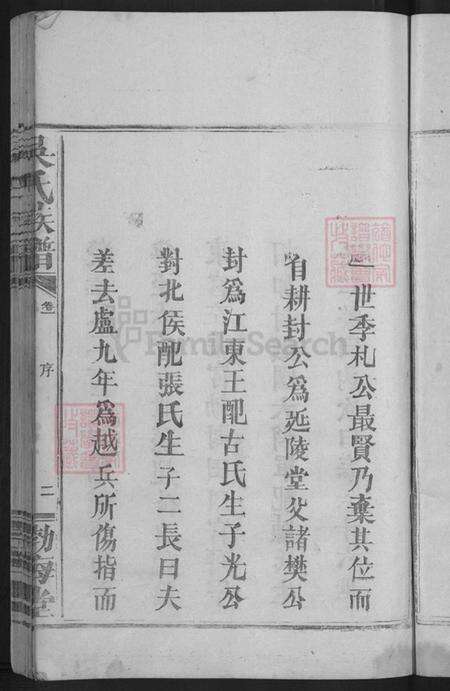 世季札公最賢乃棄其位而
自耕封公為延陵堂父諸樊公
封為江東王配古氏生子光公
對北侯配張氏生子二長曰夫
差去盧九年為越兵所傷指而
吳氏族譜
卷一
序
二
渤海堂
FamilySearch